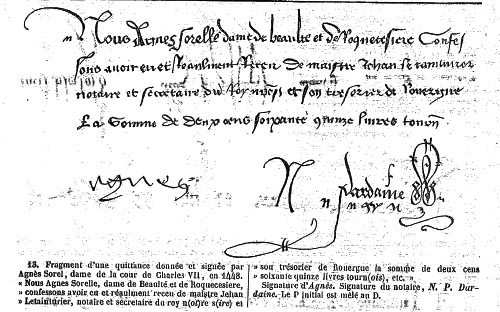 Nous Agnes sorelle dame de beaulte et de Roquecesiere Confes
sons avoir eu et Reaulment Receu de maistre Jehan le tainturier
notaire et secretaire du Roy nre sr et son tresorier de Rouergue
La somme de deux cens soixante quinze livres tourn
Agnes
N P Dardaine
13. Fragment d'une quittance donnée et signée par
Agnès Sorel, dame de la cour de Charles VII, en 1448.
« Nous Agnes Sorelle, dame de Beaulté et de Roquecesiere,
» confessons avoir eu et réaulment receu de maistre Jehan
» Letainturier, notaire et secrétaire du roy n(ot)re s(ire) et
» son trésorier de Rouergue la somme de deux cens
» soixante quinze livres tourn(ois), etc. »
Signature d'Agnès. Signature du notaire, N. P. Dar-
daine. Le P initial est mêlé au D.